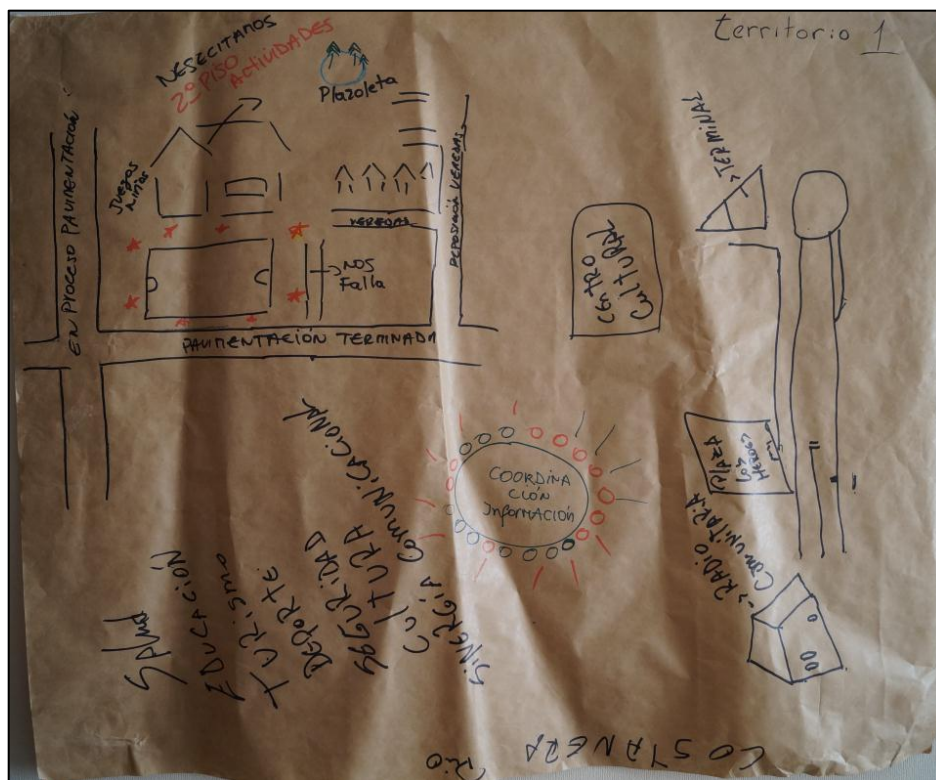 territorio 1
NESECITAMOS
2º PISO
ACTIVIDADES
Plazoleta
EN PROCESO PAVIMENTACIÓN
Juegos
niños
VEREDAS
REPOSICIÓN VEREDAS
NOS
Falla
PAVIMENTACIÓN TERMINADA
CENTRO
CULTURAL
TERMINAL
COORDINA
CIÓN
INFORMACIÓN
PLAZA
LOS
HEROES
RADIO
COMUNITARIA
Salud
EDUCACIÓN
TURISMO
DEPORTE
SEGURIDAD
CULTURA
SINERGIA COMUNICACIONAL
COSTANERA
RIO